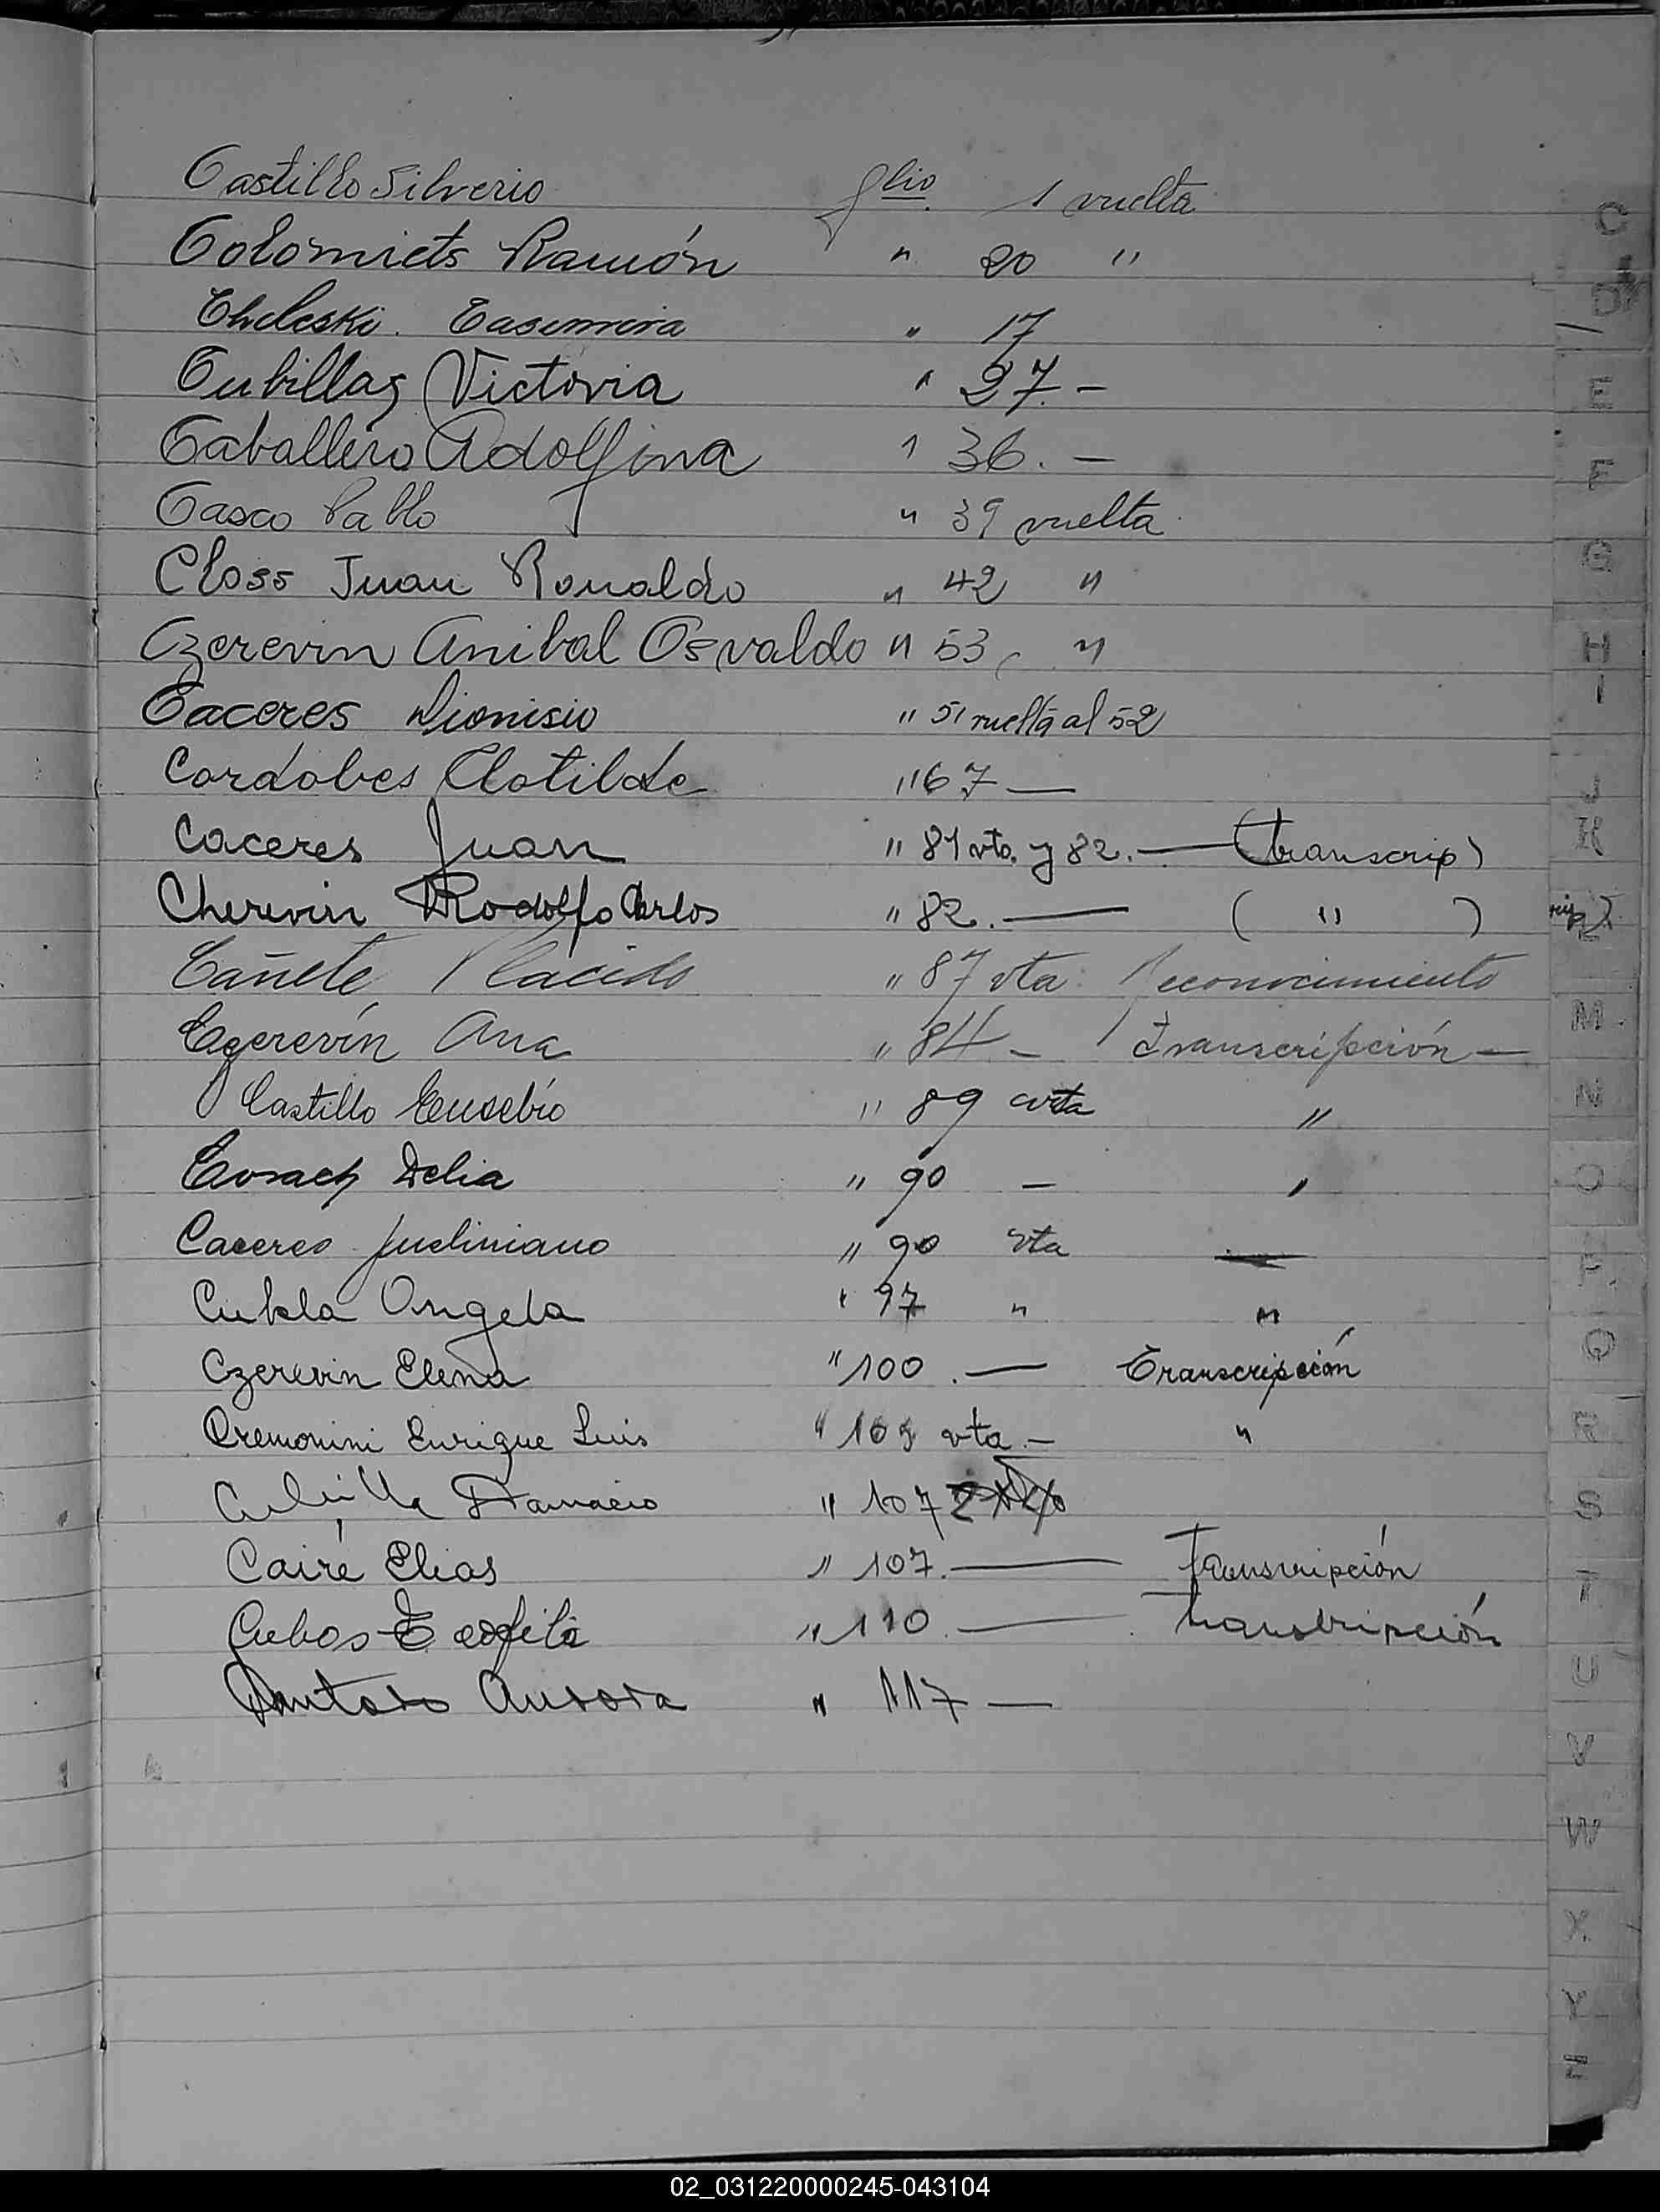 Castillo Silverio flio. 1 vuelta
Colomiets Ramón " 20 "
Cheleski. Casimira " 17
Cubillas Victoria " 27.-
Caballero Adolfina " 36.-
Casco Pablo " 39 vuelta
Closs Juan Ronaldo " 42 "
Czerevin Anibal Osvaldo " 53 "
Caceres Dionisio " 51 vuelta al 52
Cordobes Clotilde " 67 —
Caceres Juan " 81 vto. y 82. — (transcrip)
Cherevin Rodolfo Carlos " 82. — ( " )
Cañete Placido " 87 vta. Reconocimiento
Czerevín Ana " 84 - Transcripción -
Castillo Eusebio " 89 vta "
Delia " 90 - "
Caceres Justiniano " 90 vta —
Cukla Angela " 97 " "
Czerevin Elena " 100. — Transcripción
Cremonini Enrique Luis " vta.- "
Damacio " 107
Cairé Elias " 107. — Transcripción
Cubos Teofila " 110. — Transcripción
Aurora " 117 —
C
D
E
F
G
H
I
J
K
M
N
O
P
Q
R
S
T
U
V
W
X
Y
Z
02_031220000245-043104